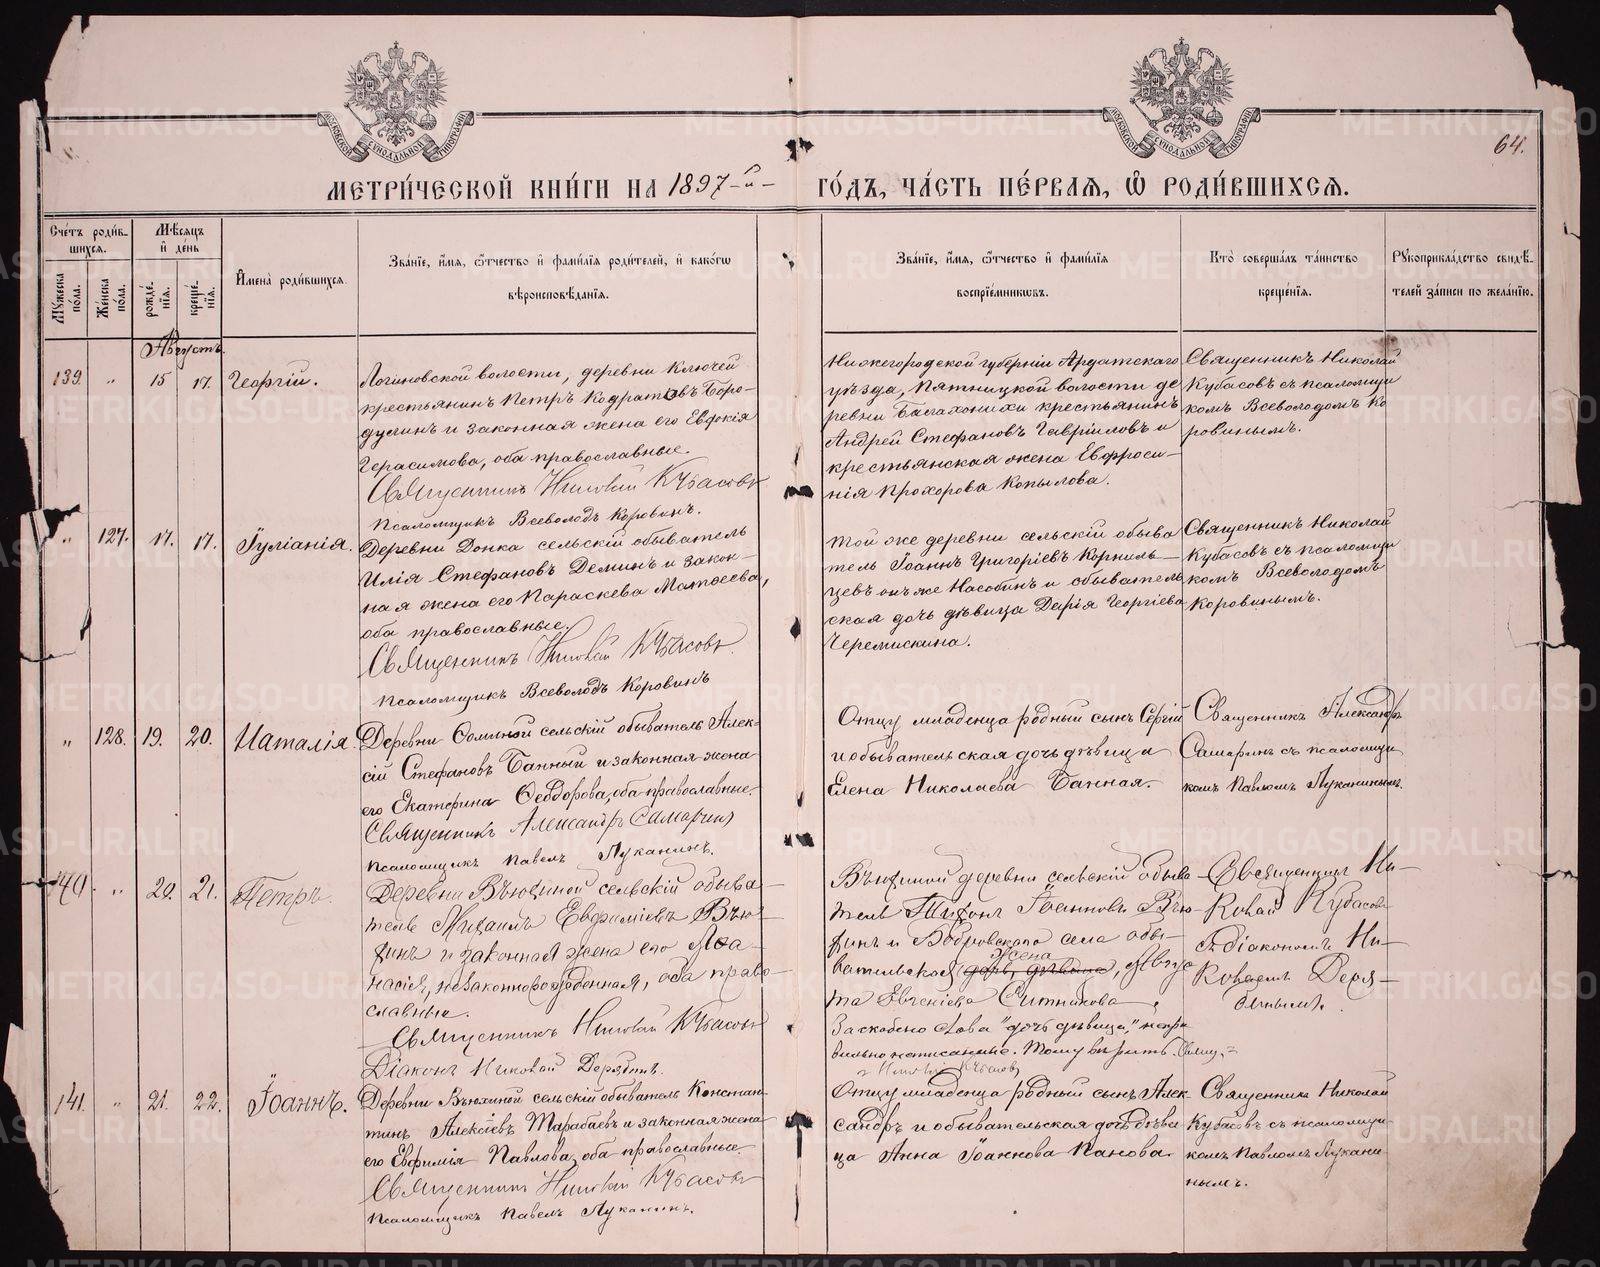 64.
МЕТРИ́ЧЕСКОЙ КНИ́ГИ НА 1897-й- ГО́ДЪ, ЧА́СТЬ ПЕ́РВАЯ, Ѽ РОДИ́ВШИХСЯ.
Сче́тъ роди́в-
шихся.
Мꙋ́жеска по́ла.
Же́нска по́ла.
Мѣ́сяцъ и҆ де́нь
рожде́-нїя.
креще́-нїя.
И҆мена̀ роди́вшихся.
Зва́нїе, и҆́мя, ѻ҆́тчество и҆ фами́лїя роди́телей, и҆ како́гѡ
вѣроисповѣ́данїя.
Зва́нїе, и҆́мя, ѻ҆́тчество и҆ фами́лїя
воспрїе́мникѡвъ.
Кто̀ соверша́лъ та́инство
креще́нїя.
Рꙋкоприкла́дство свидѣ́-
телей за́писи по жела́нїю.
Августъ.
139. " 15 17. Георгій.
Логиновской волости, деревни Ключей
крестьянинъ Петръ Кодратовъ Боро-
дулинъ и законная жена его Евдокія
Герасимова, оба православные.
Священникъ Николай Кубасовъ
Псаломщикъ Всеволодъ Коровинъ.
Нижегородской губерніи Ардатскаго
уѣзда, Пятницкой волости де
ревни Балахонихи крестьянинъ
Андрей Стефановъ Гавріиловъ и
крестьянская жена Евфроси-
нія Прохорова Копылова.
Священникъ Николай
Кубасовъ съ псаломщи
комъ Всеволодомъ Ко
ровинымъ.
" 127. 17. 17. Іуліанія.
Деревни Донка сельскій обыватель
Илія Стефановъ Деминъ и закон-
ная жена его Параскева Матѳеева,
оба православные.
Священникъ Николай Кубасовъ.
Псаломщикъ Всеволодъ Коровинъ
Той же деревни сельскій обыва
тель Іоаннъ Григоріевъ Корниль-
цевъ онъ же Насобинъ и обыватель
ская дочь дѣвица Дарія Георгіева
Черемискина.
Священникъ Николай
Кубасовъ съ псаломщи
комъ Всеволодомъ
Коровинымъ.
" 128. 19. 20. Наталія.
Деревни сельскій обыватель Алек-
сій Стефановъ Банный и законная жена
его Екатерина Ѳеодорова, оба православные.
Священникъ Александръ Самаринъ
Псаломщикъ Павелъ Луканинъ.
Отцу младенца родный сынъ Сергій
и обывательская дочь дѣвица
Елена Николаева Банная.
Священникъ Александръ
Самаринъ съ псаломщи
комъ Павломъ Луканинымъ.
140 " 20. 21. Петръ.
Деревни Вьюхиной сельскій обыва-
тель Михаилъ Евфиміевъ Вью-
хинъ и законная жена его Аѳа-
насія, незаконнорожденная, оба право-
славные.
Священникъ Николай Кубасовъ
Діаконъ Николай Дерябинъ.
Вьюхиной деревни сельскій обыва-
тель Тихонъ Іоанновъ Вью-
хинъ и Бобровскаго села обы-
жена
вательская (дочь, дѣвица), Авгус
та Евгеніева Ситникова.
Заскоблено слова "дочь дѣвица," непра
вильно написанные. Тому вѣрить. Свящ.
Николай Кубасовъ
Священникъ Ни-
колай Кубасовъ
съ діакономъ Ни-
колаемъ Деря-
бинымъ.
141. " 21. 22. Іоаннъ.
Деревни Вьюхиной сельскій обыватель Констан-
тинъ Алексіевъ Тарабаевъ и законная жена
его Евфимія Павлова, оба православные.
Священникъ Николай Кубасовъ
Псаломщикъ Павелъ Луканинъ.
Отцу младенца родный сынъ Алек
сандръ и обывательская дочь дѣви
ца Анна Іоаннова Панова.
Священникъ Николай
Кубасовъ съ псаломщи
комъ Павломъ Лукани
нымъ.
METRIKI.GASO-URAL.RU